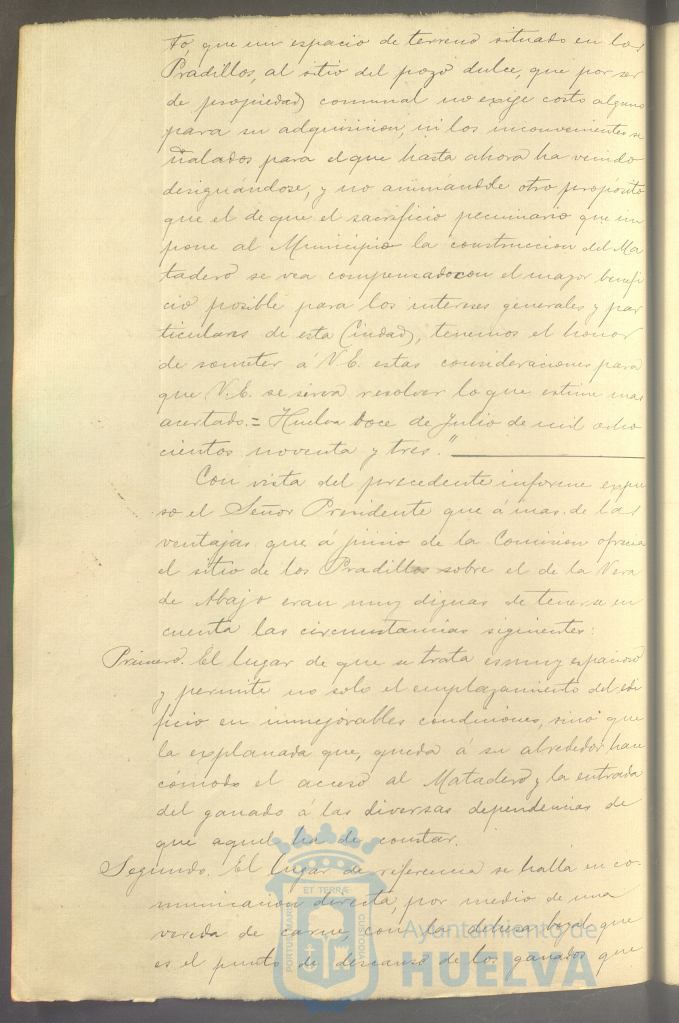 to, que un espacio de terreno situado en los
Pradillos, al sitio del pozo dulce, que por ser
de propiedad comunal no exige costo alguno
para su adquisicion, ni los inconvenientes se
ñalados para el que hasta ahora ha venido
designándose, y no animándole otro propósito
que el de que el sacrificio pecuniario que im
pone al Municipio la construccion del Ma
tadero se vea compensado con el mayor benefi
cio posible para los intereses generales y par
ticulares de esta Ciudad, tenemos el honor
de someter á V.E. estas consideraciones para
que V.E. se sirva resolver lo que estime mas
acertado.= Huelva doce de Julio de mil ocho
cientos noventa y tres."
Con vista del precedente informe expu
so el Señor Presidente que á mas de las
ventajas que á juicio de la Comision ofrecia
el sitio de los Pradillos sobre el de la Vera
de Abajo eran muy dignas de tenerse en
cuenta las circunstancias siguientes:
Primero. El lugar de que se trata es muy espacioso
y permite no solo el emplazamiento del edi
ficio en inmejorables condiciones, sino que
la explanada que, queda á su alrededor, hace
cómodo el acceso al Matadero y la entrada
del ganado á las diversas dependencias de
que aquel ha de constar.
Segundo. El lugar de referencia se halla en co-
municacion directa, por medio de una
vereda de carne, con la dehesa boyal, que
es el punto de descanso de los ganados que
ET TERRÆ
PORTUS MARIS
CUSTODIA
Ayuntamiento de
HUELVA